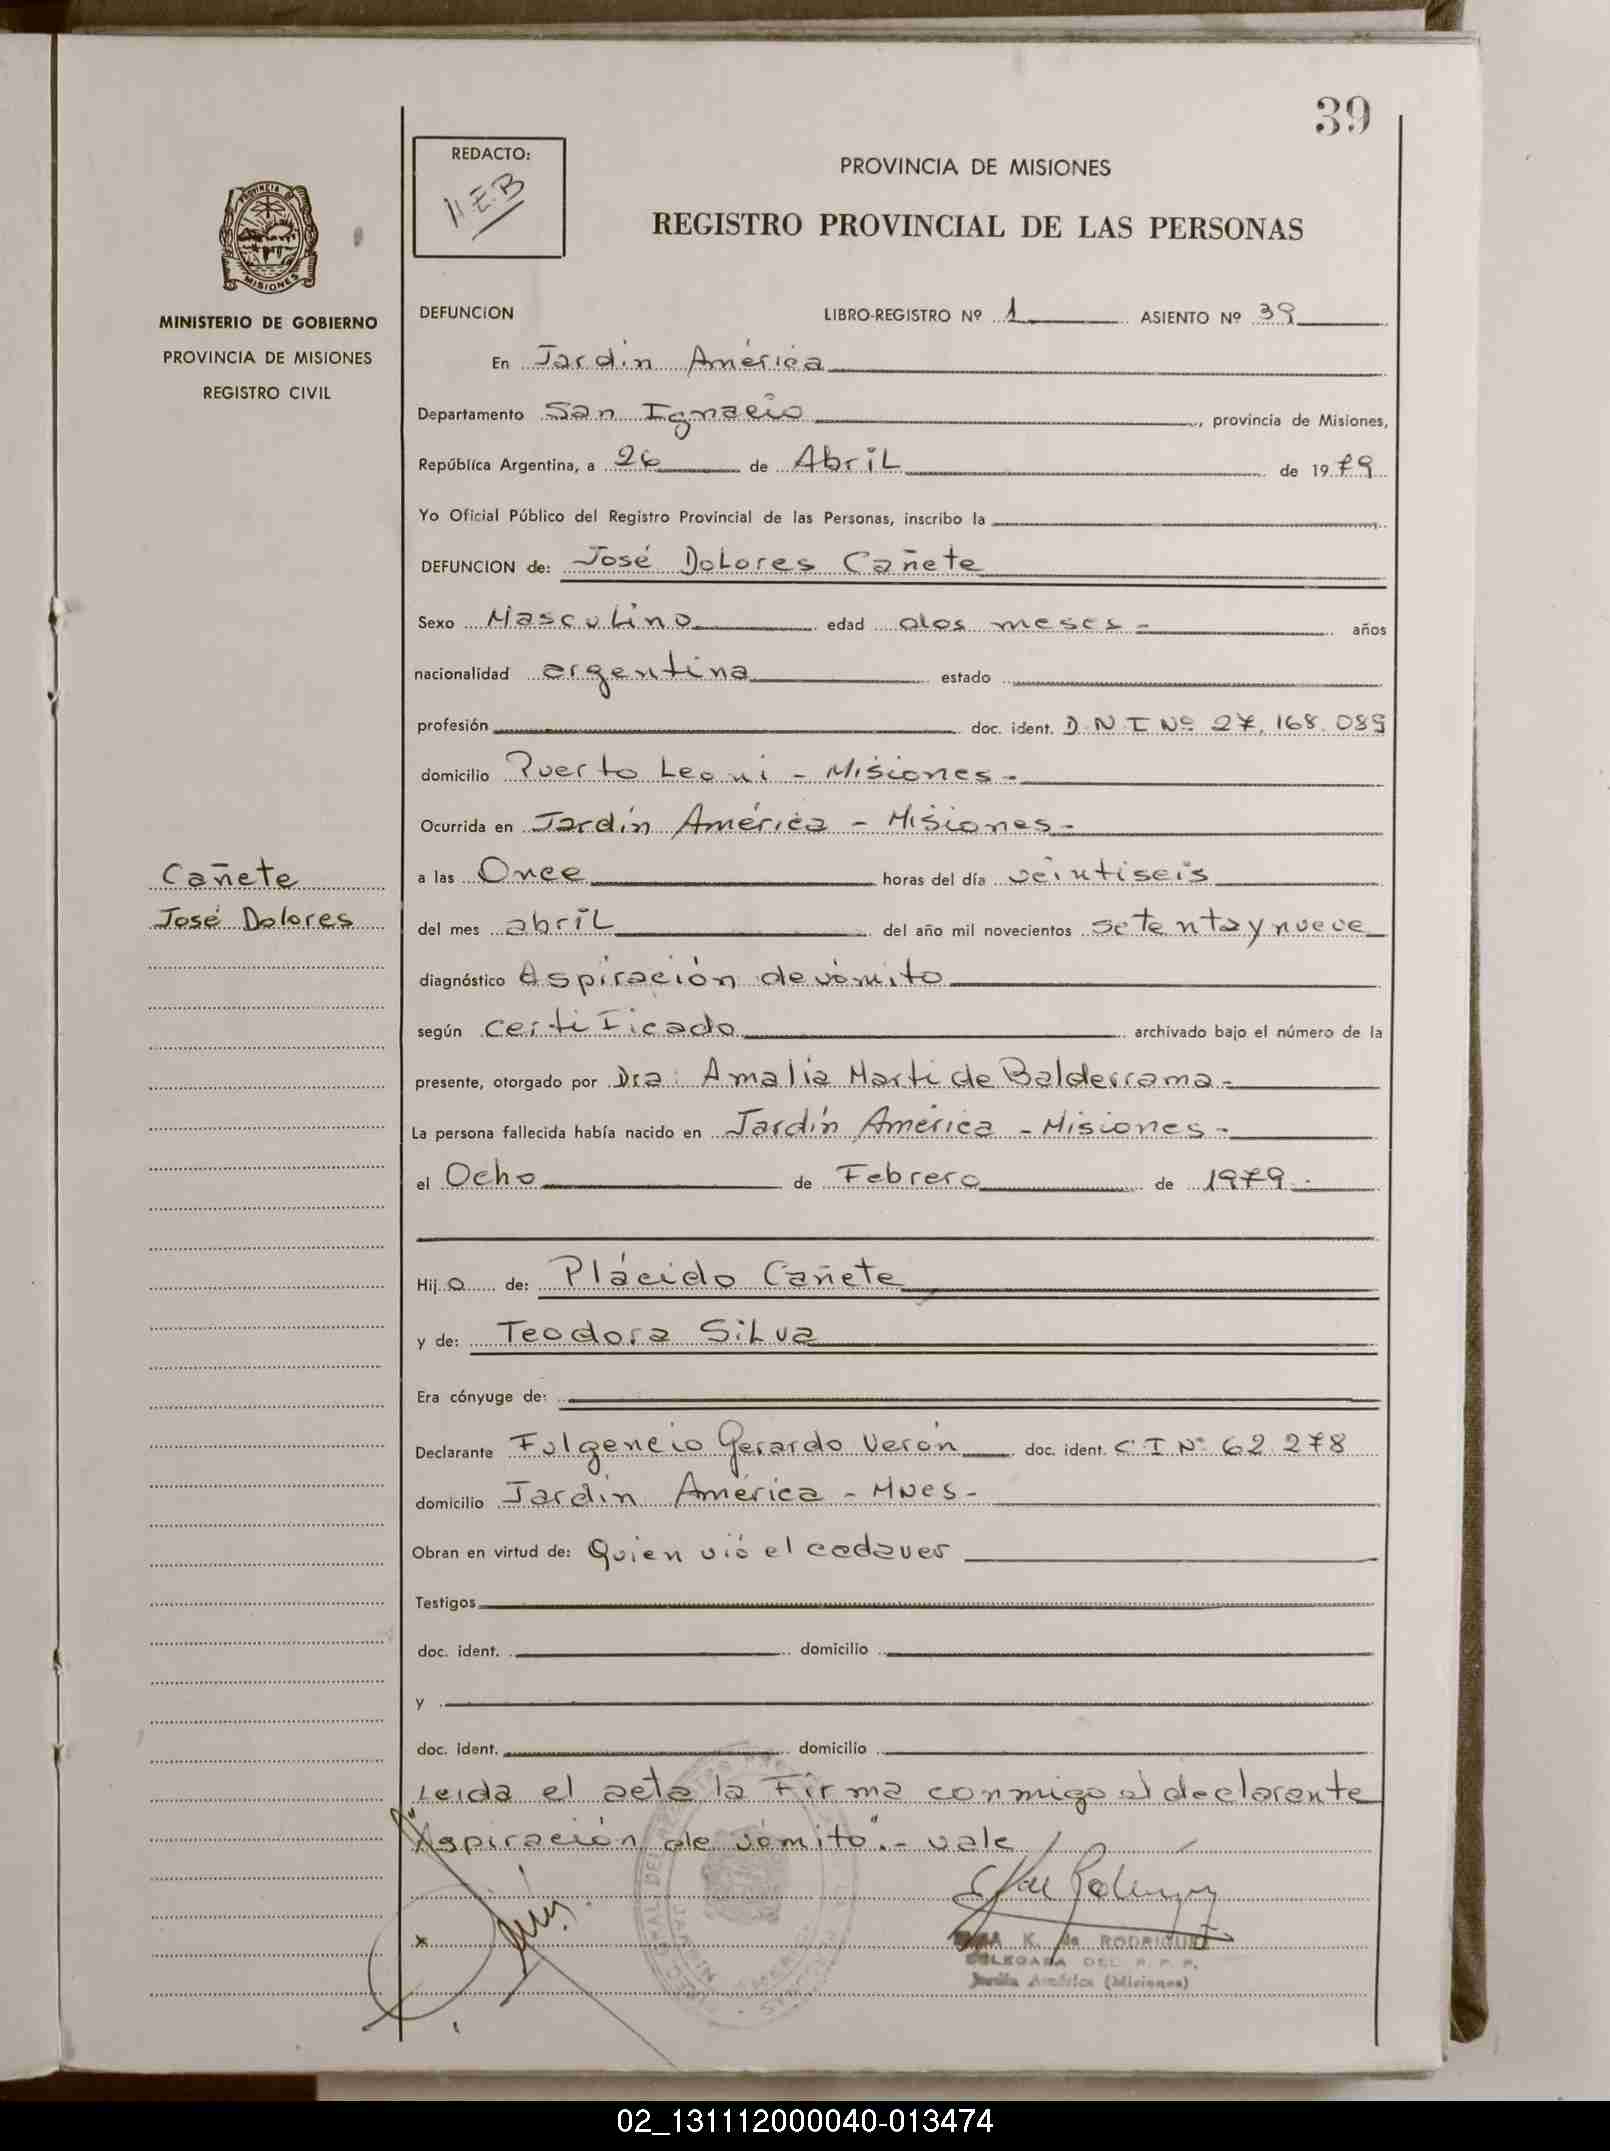 39
REDACTO:
PROVINCIA DE MISIONES
REGISTRO PROVINCIAL DE LAS PERSONAS
MINISTERIO DE GOBIERNO
PROVINCIA DE MISIONES
REGISTRO CIVIL
DEFUNCION LIBRO-REGISTRO Nº 1 ASIENTO Nº 39
En Jardín América
Departamento San Ignacio, provincia de Misiones,
República Argentina, a 26 de Abril de 1979
Yo Oficial Público del Registro Provincial de las Personas, inscribo la
DEFUNCION de: José Dolores Cañete
Sexo Masculino edad dos meses - años
nacionalidad argentina estado
profesión doc. ident. D.N.I Nº 27.168.089
domicilio Puerto Leoni - Misiones -
Ocurrida en Jardín América - Misiones -
Cañete
José Dolores
a las Once horas del día veintiseis
del mes abril del año mil novecientos setenta y nueve
diagnóstico Aspiración de vómito
según certificado archivado bajo el número de la
presente, otorgado por Dra. Amalia Marti de Balderrama -
La persona fallecida había nacido en Jardín América - Misiones -
el Ocho de Febrero de 1979.
Hijo de: Plácido Cañete
y de: Teodora Silva
Era cónyuge de:
Declarante Fulgencio Gerardo Verón doc. ident. C.I Nº 62.278
domicilio Jardín América - Mnes -
Obran en virtud de: Quien vió el cadaver
Testigos
doc. ident. domicilio
y
doc. ident. domicilio
Leida el acta la Firma conmigo el declarante
"Aspiración de vómito".- vale
K. de RODRIGUEZ
DELEGADA DEL R. P. P.
Jardín América (Misiones)
02_131112000040-013474